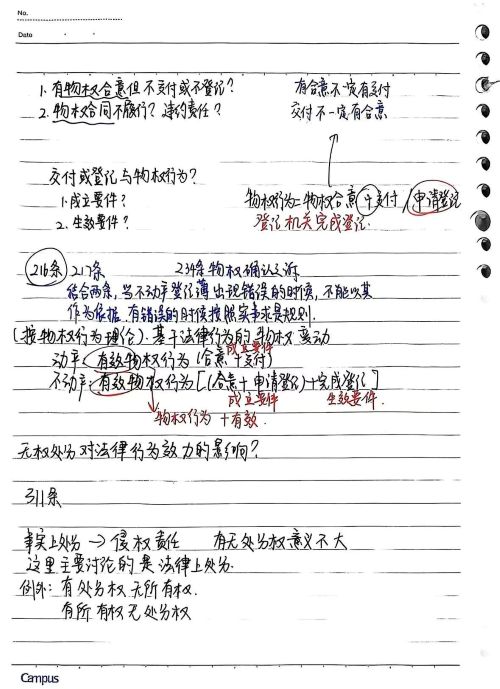 No.
Date
1. 有物权合意但不交付或不登记? 有合意不一定有交付
2. 物权合同不履行? 违约责任? 交付不一定有合意
交付或登记与物权行为?
1.成立要件? 物权行为=物权合意+交付/申请登记
2. 生效要件? 登记机关完成登记.
216条 217条 234条物权确认之诉
结合两条,当不动产登记薄出现错误的时候,不能以其
作为依据.有错误的时候按照实事求是规则.
(按物权行为理论).基于法律行为的物权变动
成立要件
动产:有效物权行为(合意+交付)
不动产:有效物权行为[(合意+申请登记)+完成登记]
成立要件 生效要件.
物权行为+有效.
无权处分对法律行为效力的影响?
311条
事实上处分→侵权责任 有无处分权意义不大
这里主要讨论的是法律上处分.
例外:有处分权无所有权.
有所有权无处分权
Campus